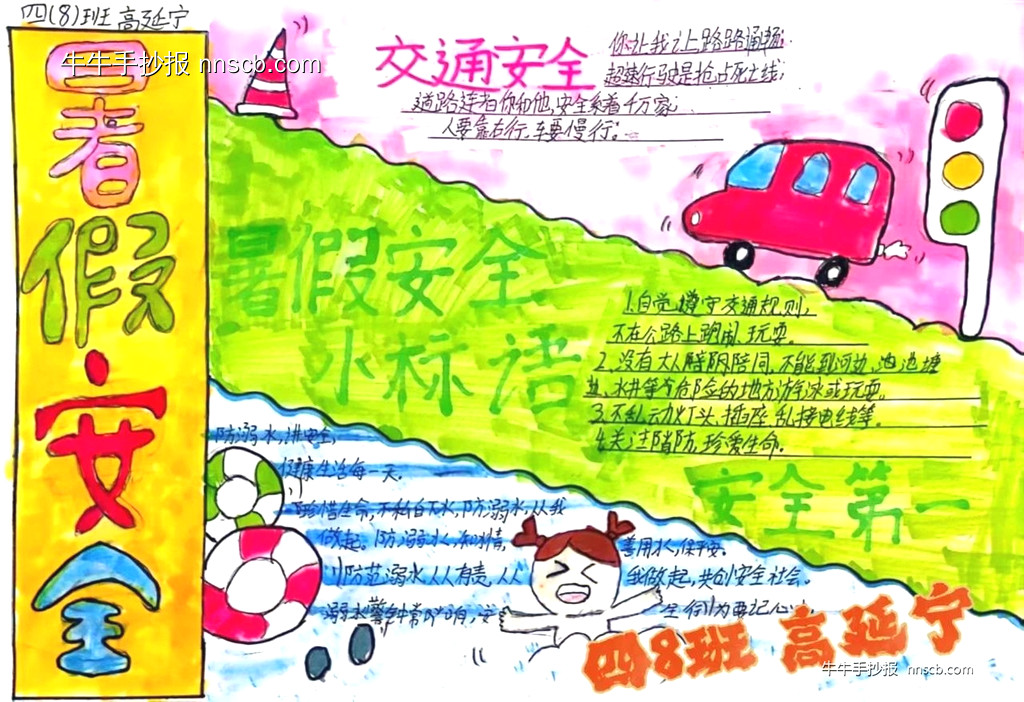 四(8)班 高延宁
牛牛手抄报 nnscb.com
暑假安全
交通安全
你让我让上路路通畅;
超速行驶是抢占死亡线;
道路连着你和他,安全系着千万家;
人要靠右行,车要慢行。
暑假安全
小标语
1.自觉遵守交通规则,
不在公路上跑闹、玩耍。
2.没有大人陪同,不能到河边,池边塘
边、水井等危险的地方游泳或玩耍。
3.不乱动灯头、插座、乱接电线等。
4.关注消防,珍爱生命。
安全第一
防溺水,讲安全,
健康生活每一天。
珍惜生命,不私自下水,防溺水,从我
做起。防溺水,知水情,善用水,保平安。
防范溺水,人人有责,人人我做起,共创安全社会。
溺水警钟常鸣响,安全行为要记心。
四8班 高延宁
牛牛手抄报 nnscb.com